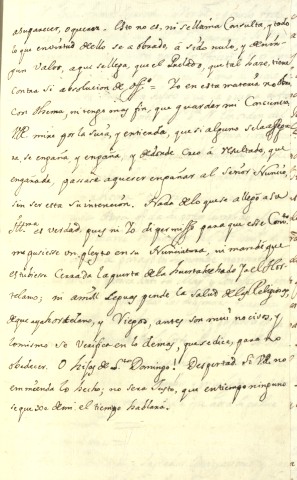 a suparecer, o querer. = Esto no es, ni se llama Consulta, y todo
lo que en virtud dello se a obrado, à sido nulo, y de nin-
gun Valor, a que se llega, que el Prelado, que tal hace, tiene
contra si absolucion de off.º = Yo en esta materia no obro
con thema, ni tengo mas fin, que guardar mi Conciencia
me mire por la suia, y entienda, que si alguno se la assegu-
ra se engaña, y engaña, y de donde creo à resultado, que
engañada, passase a querer empañar al Señor Nuncio,
sin ser esta su intencion. Nada de lo que se allegò a su
Illma es verdad, pues ni Yo di permisso para que este Conto
me pusiesse un pleyto en su Nunciatura, ni mande que
estubiese Cerrada la puerta de la huerta hechado Ja el Hor-
telano; ni à mill leguas pende la salud de las Religiosas
de que aya hortelano, y Viejos, antes son mui nocivos, y
lo mismo se Verifica en lo demas, que se dice, para no
obedecer. O hijas de Sto Domingo! Despertad. Si no
enmienda lo hecho; no sera Justo, que en tiempo ninguno
se quexe de mi. el tiempo hablarà.